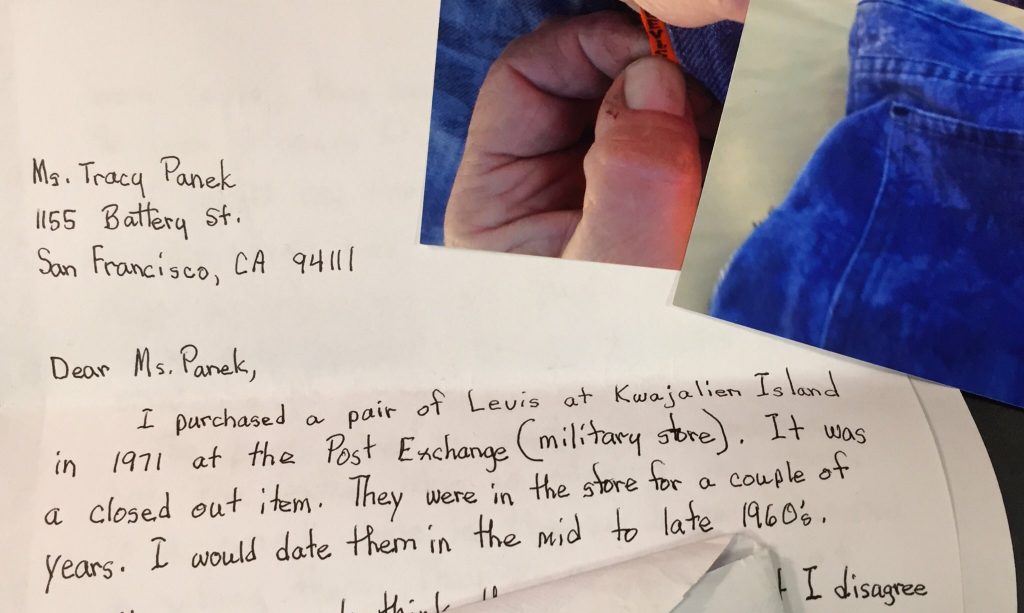 Ms. Tracy Panek
1155 Battery St.
San Francisco, CA 94111
Dear Ms. Panek,
I purchased a pair of Levis at Kwajalien Island
in 1971 at the Post Exchange (military store). It was
a closed out item. They were in the store for a couple of
years. I would date them in the mid to late 1960's.
think I disagree